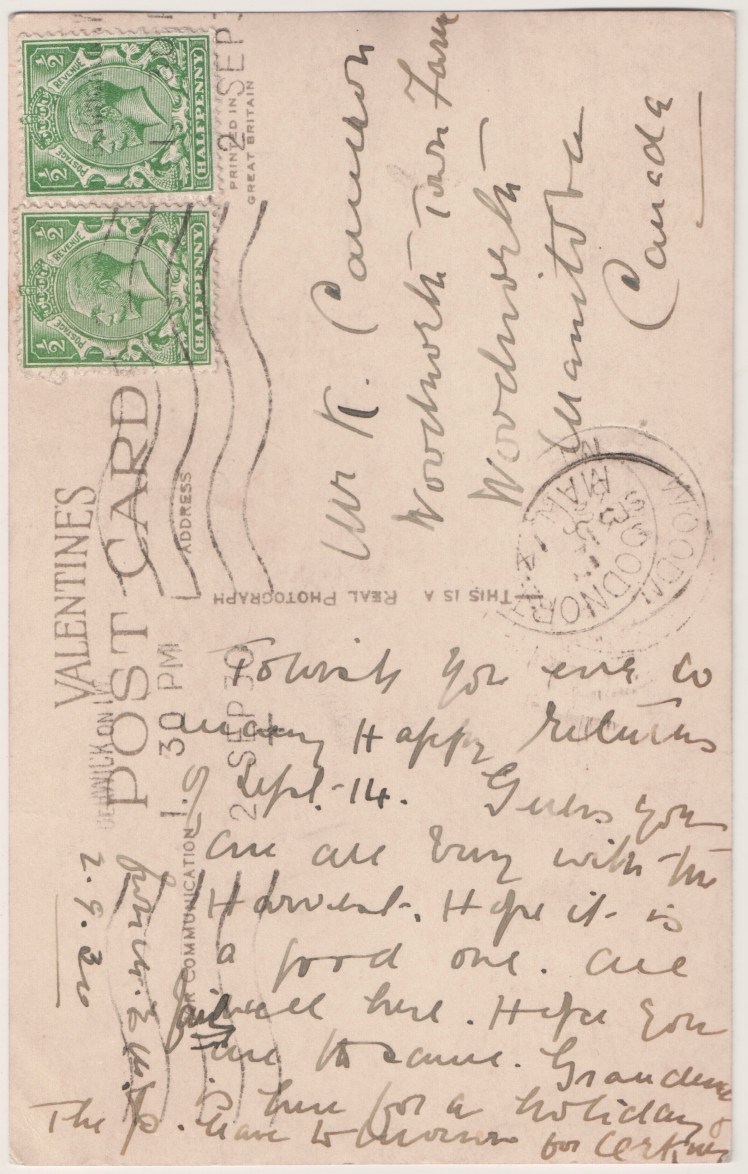 VALENTINE'S
POST CARD
ADDRESS
FOR COMMUNICATION
PRINTED IN
GREAT BRITAIN
THIS IS A REAL PHOTOGRAPH
½ ½
POSTAGE REVENUE
HALFPENNY
½ ½
POSTAGE REVENUE
HALFPENNY
1. 30 PM
2 SEP 30
2 SEP
Mr K. Cameron
Woodnorth Town Farm
Woodnorth
Manitoba
Canada
2.9.30
To wish you ever so
many Happy Returns
of Sept. 14. Guess you
are all busy with the
Harvest. Hope it is
a good one. All
well here. Hope you
are the same. Grandma
is here for a holiday &
The leave tomorrow for